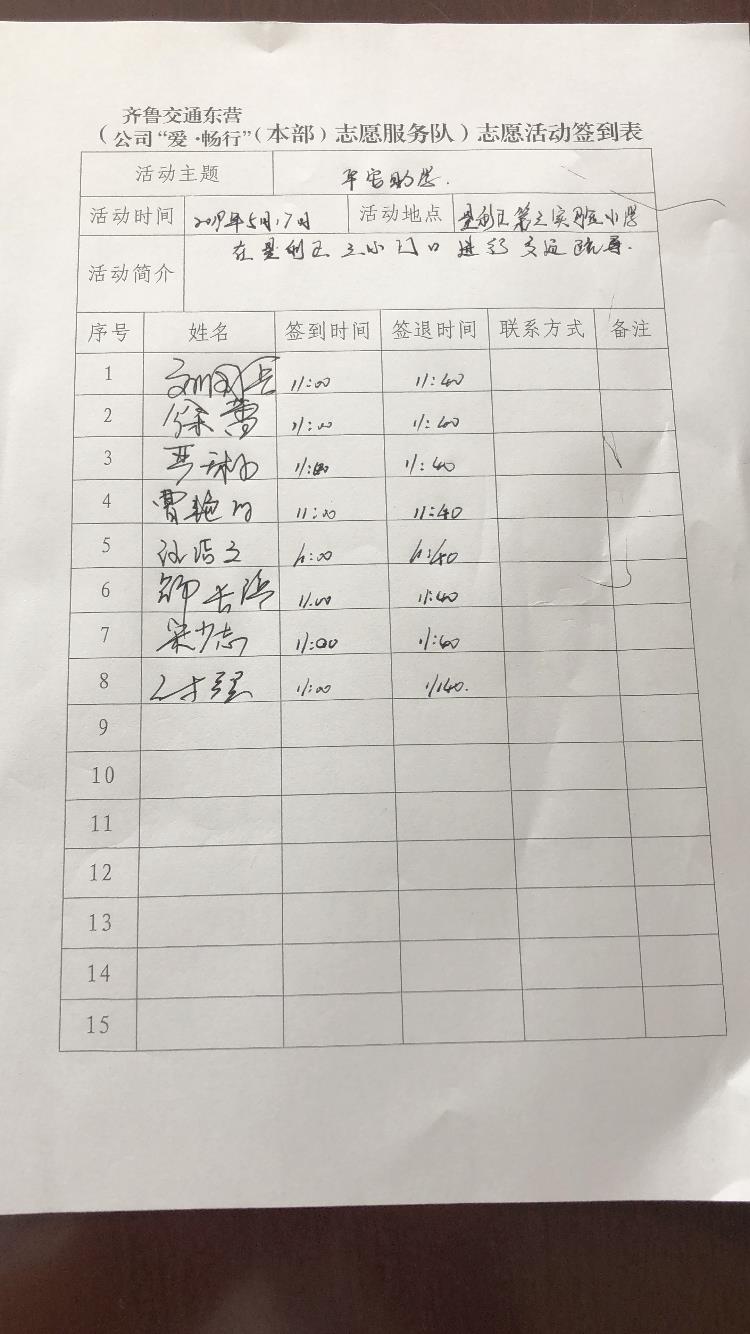 齐鲁交通东营
(公司“爱·畅行”(本部)志愿服务队)志愿活动签到表
活动主题 平安助学.
活动时间 2019年5月17日 活动地点 垦利区第三实验小学
活动简介 在垦利区三小门口进行交通疏导.
序号 姓名 签到时间 签退时间 联系方式 备注
1 11:00 11:40
2 徐蕾 11:00 11:40
3 11:00 11:40
4 曹艳 11:00 11:40
5 11:00 11:40
6 11:00 11:40
7 宋少志 11:00 11:40
8 11:00 11:40.
9
10
11
12
13
14
15